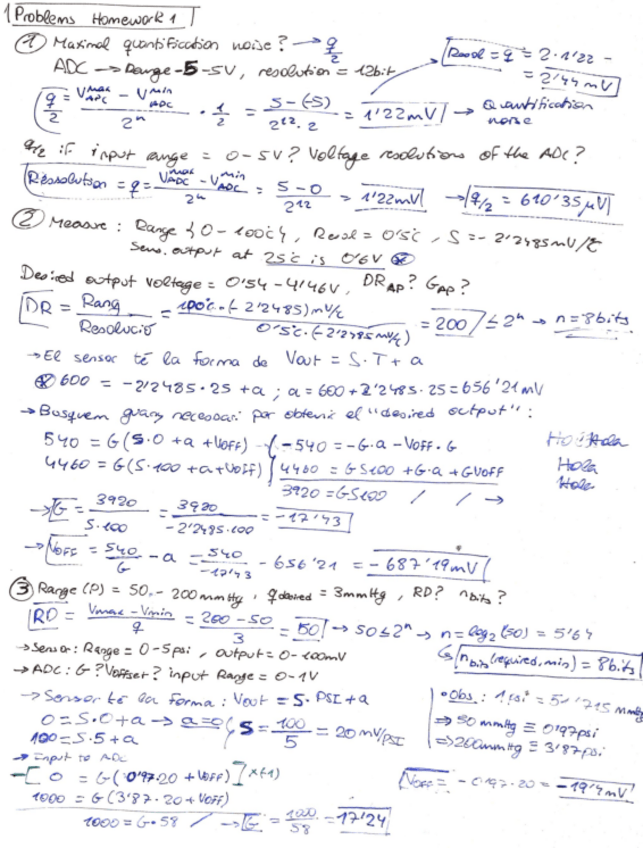 Problems Homework 1
① Maximal quantification noise? → q/2
ADC → Range -5-5V, resolution = 12bit
Resol = q = 2·1'22 =
= 2'44 mV
q/2 = (V^max_ADC - V^min_ADC)/2^n · 1/2 = (5-(-5))/(2^12·2) = 1'22 mV → Quantification noise
q/2 if input range = 0-5V? Voltage resolutions of the ADC?
Ressolution = q = (V^max_ADC - V^min_ADC)/2^n = (5-0)/2^12 = 1'22mV → q/2 = 610'35 μV
② Measure: Range {0-100ºC}, Resol = 0'5ºC, S = -2'2485mV/ºC
Sens. output at 25ºC is 0'6V ⊛
Desired output voltage = 0'54 - 4'46V, DR_AP? G_AP?
DR = Rang/Resolució = (100ºC·(-2'2485)mV/ºC)/(0'5ºC·(-2'2485mV/ºC)) = 200 ≤ 2^n → n=8bits
→ El sensor té la forma de Vout = S·T + a
⊛ 600 = -2'2485·25 + a ; a = 600 + 2'2485·25 = 656'21 mV
→ Busquem guany necessari per obtenir el "desired output":
540 = G(S·0 + a + Voff) { -540 = -G·a - Voff·G
4460 = G(S·100 + a + Voff) { 4460 = GS100 + G·a + GVoff
3920 = GS100 / / →
Hola
Hola
Hola
→ G = 3920/(S·100) = 3920/(-2'2485·100) = -17'43
→ Voff = 540/G - a = 540/(-17'43) - 656'21 = -687'19 mV
③ Range (P) = 50 - 200 mmHg, q desired = 3mmHg, RD? n bits?
RD = (Vmax - Vmin)/q = (200-50)/3 = 50 → 50 ≤ 2^n → n = log2(50) = 5'64
↳ n bits (required, min) = 8bits
→ Sensor: Range = 0-5psi, output = 0-100mV
→ ADC: G? Voffset? input Range = 0-1V
→ Sensor té la forma: Vout = S·PSI + a
0 = S·0 + a → a=0 { S = 100/5 = 20 mV/PSI
100 = S·5 + a
• Obs: 1 psi = 51'715 mmHg
⇒ 50 mmHg ≡ 0'97psi
⇒ 200mmHg ≡ 3'87psi
→ Input to ADC
-[0 = G(0'97·20 + Voff)] x(-1)
1000 = G(3'87·20 + Voff)
1000 = G·58 / → G = 1000/58 = 17'24
Voff = -0'97·20 = -19'4mV